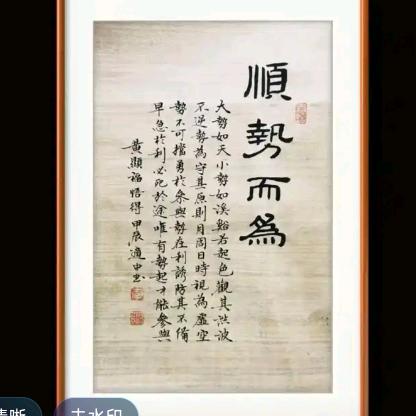 順勢而為
大勢如天小勢如溪若起色觀其洪波
不逆勢為守其原則月周日時視為虛空
勢不可擋勇於參與勢在利誘防其不備
早急於利必死於途唯有勢起才能參與
黃顯 悟得甲辰適中書
清晰
去水印